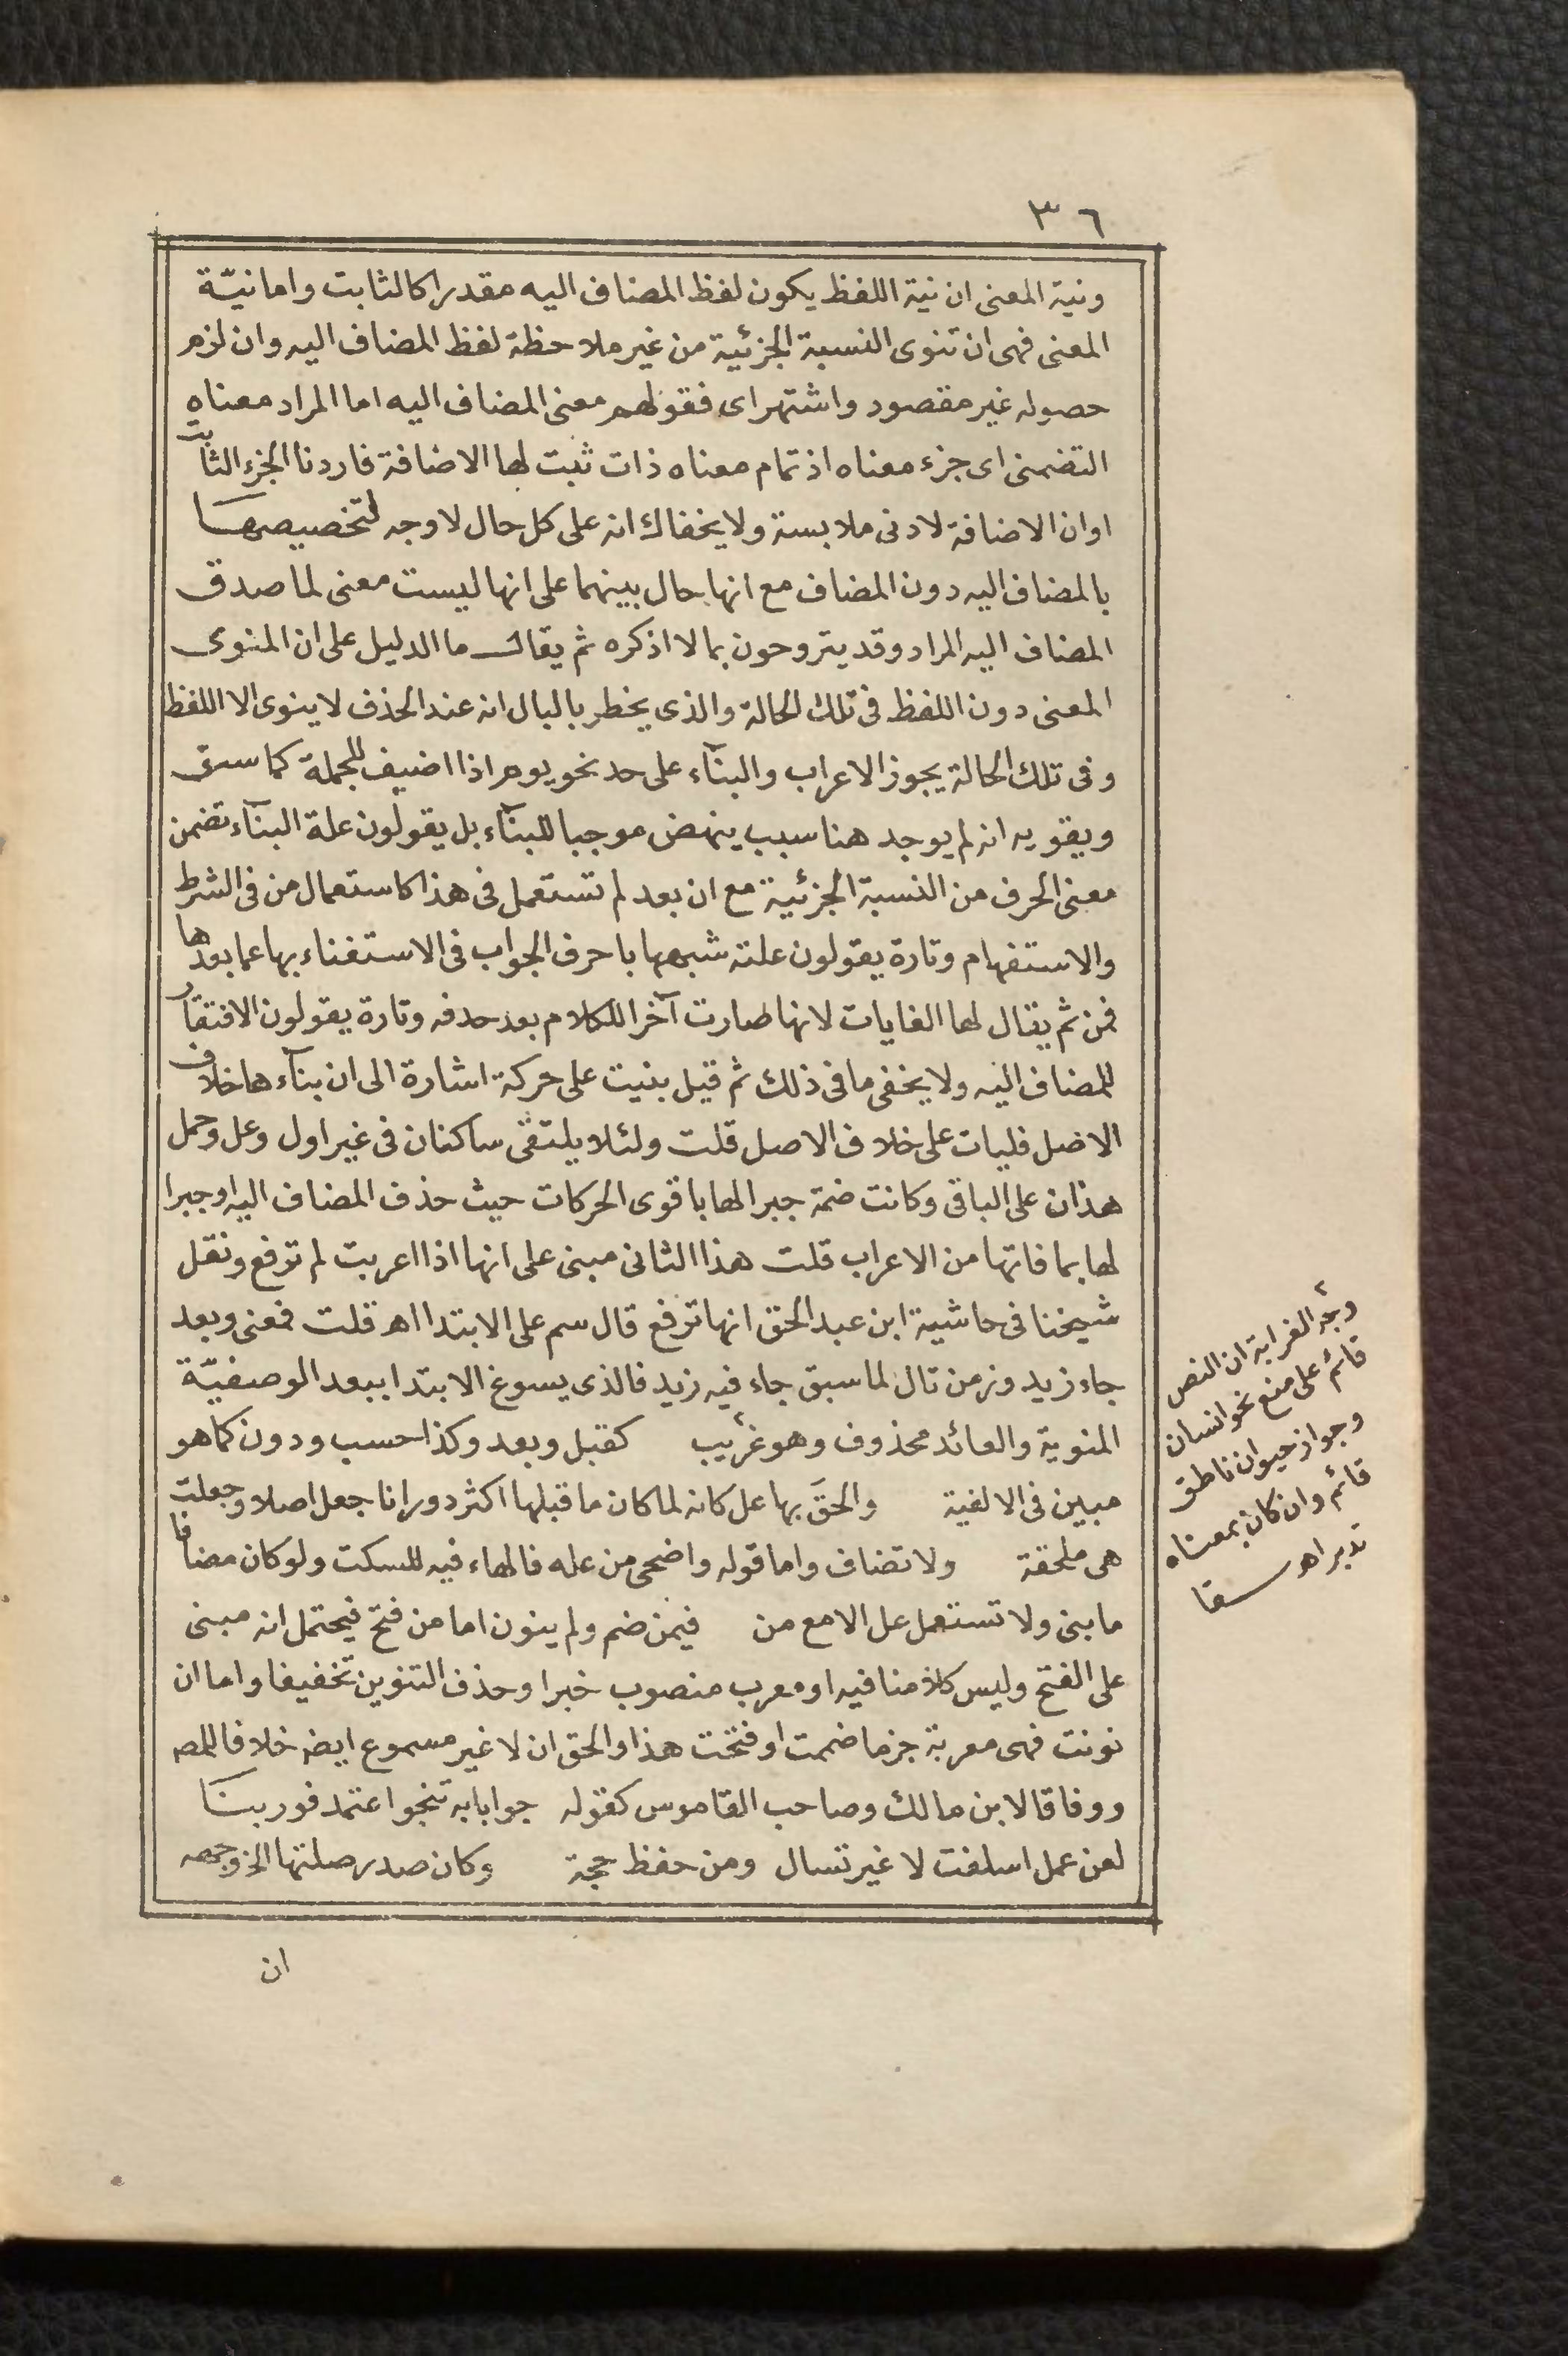 ٣٦
ونية المعنى ان نية اللفظ يكون لفظ المضاف اليه مقدرا كالثابت واما نيّة
المعنى فهى ان تنوى النسبة الجزئية من غير ملاحظة لفظ المضاف اليه وان لزم
حصوله غير مقصود واشتهر اى فقولهم معنى المضاف اليه اما المراد معناه
التضمنى اى جزء معناه اذ تمام معناه ذات ثبت لها الاضافة فاردنا الجزء الثابت
او ان الاضافة لادنى ملابسة ولا يخفاك انه على كل حال لا وجه لتخصيصها
بالمضاف اليه دون المضاف مع انها حال بينهما على انها ليست معنى لما صدق
المضاف اليه المراد وقد يتروحون بما لا اذكره ثم يقال ما الدليل على ان المنوى
المعنى دون اللفظ فى تلك الحالة والذى يخطر بالبال انه عند الحذف لا ينوى الا اللفظ
وفى تلك الحالة يجوز الاعراب والبنآء على حد نحو يوم اذا اضيف للجملة كما سبق
ويقويه انه لم يوجد هنا سبب ينهض موجبا للبنآء بل يقولون علة البنآء تضمن
معنى الحرف من النسبة الجزئية مع ان بعد لم تستعمل فى هذا كاستعمال من فى الشرط
والاستفهام وتارة يقولون علته شبهها باحرف الجواب فى الاستغناء بها عما بعدها
فمن ثم يقال لها الغايات لانها صارت آخر الكلام بعد حذفه وتارة يقولون الافتقار
للمضاف اليه ولا يخفى ما فى ذلك ثم قيل بنيت على حركة اشارة الى ان بنآءها خلاف
الاصل فليات على خلاف الاصل قلت ولئلا يلتقى ساكنان فى غير اول وعل وحمل
هذان على الباقى وكانت ضمة جبرا لها باقوى الحركات حيث حذف المضاف اليه او جبرا
لها بما فاتها من الاعراب قلت هذا الثانى مبنى على انها اذا اعربت لم ترفع ونقل
شيخنا فى حاشية ابن عبد الحق انها ترفع قال سم على الابتدا اه قلت فمعنى وبعد
جاء زيد وزمن تال لما سبق جاء فيه زيد فالذى يسوغ الابتدا ببعد الوصفيّة
المنوية والعائد محذوف وهو غريب كقبل وبعد وكذا حسب ودون كما هو
مبين فى الالفية والحق بها عل كانه لما كان ما قبلها اكثر دورانا جعل اصلا وجعلت
هى ملحقة ولا تضاف واما قوله واضحى من عله فالهاء فيه للسكت ولو كان مضافا
ما بنى ولا تستعمل عل الا مع من فيمن ضم ولم ينون اما من فتح فيحتمل انه مبنى
على الفتح وليس كلامنا فيه او معرب منصوب خبرا وحذف التنوين تخفيفا واما ان
نونت فهى معربة جزما ضمت او فتحت هذا والحق ان لا غير مسموع ايضه خلافا للمصه
ووفاقا لابن مالك وصاحب القاموس كقوله جوابا به تنجو اعتمد فوربنا
لعن عمل اسلفت لا غير تسال ومن حفظ حجة وكان صدر صلتها الخ وجمعه
ان
وجه الغرابة ان النص
قائم على منع نحو انسان
وجواز حيوان ناطق
قائم وان كان بمعناه
تدبر اه سقا